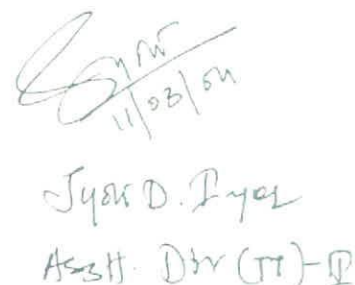 11/03/04
Jyoti D. Iyer
Asstt. Dir (TT)-II